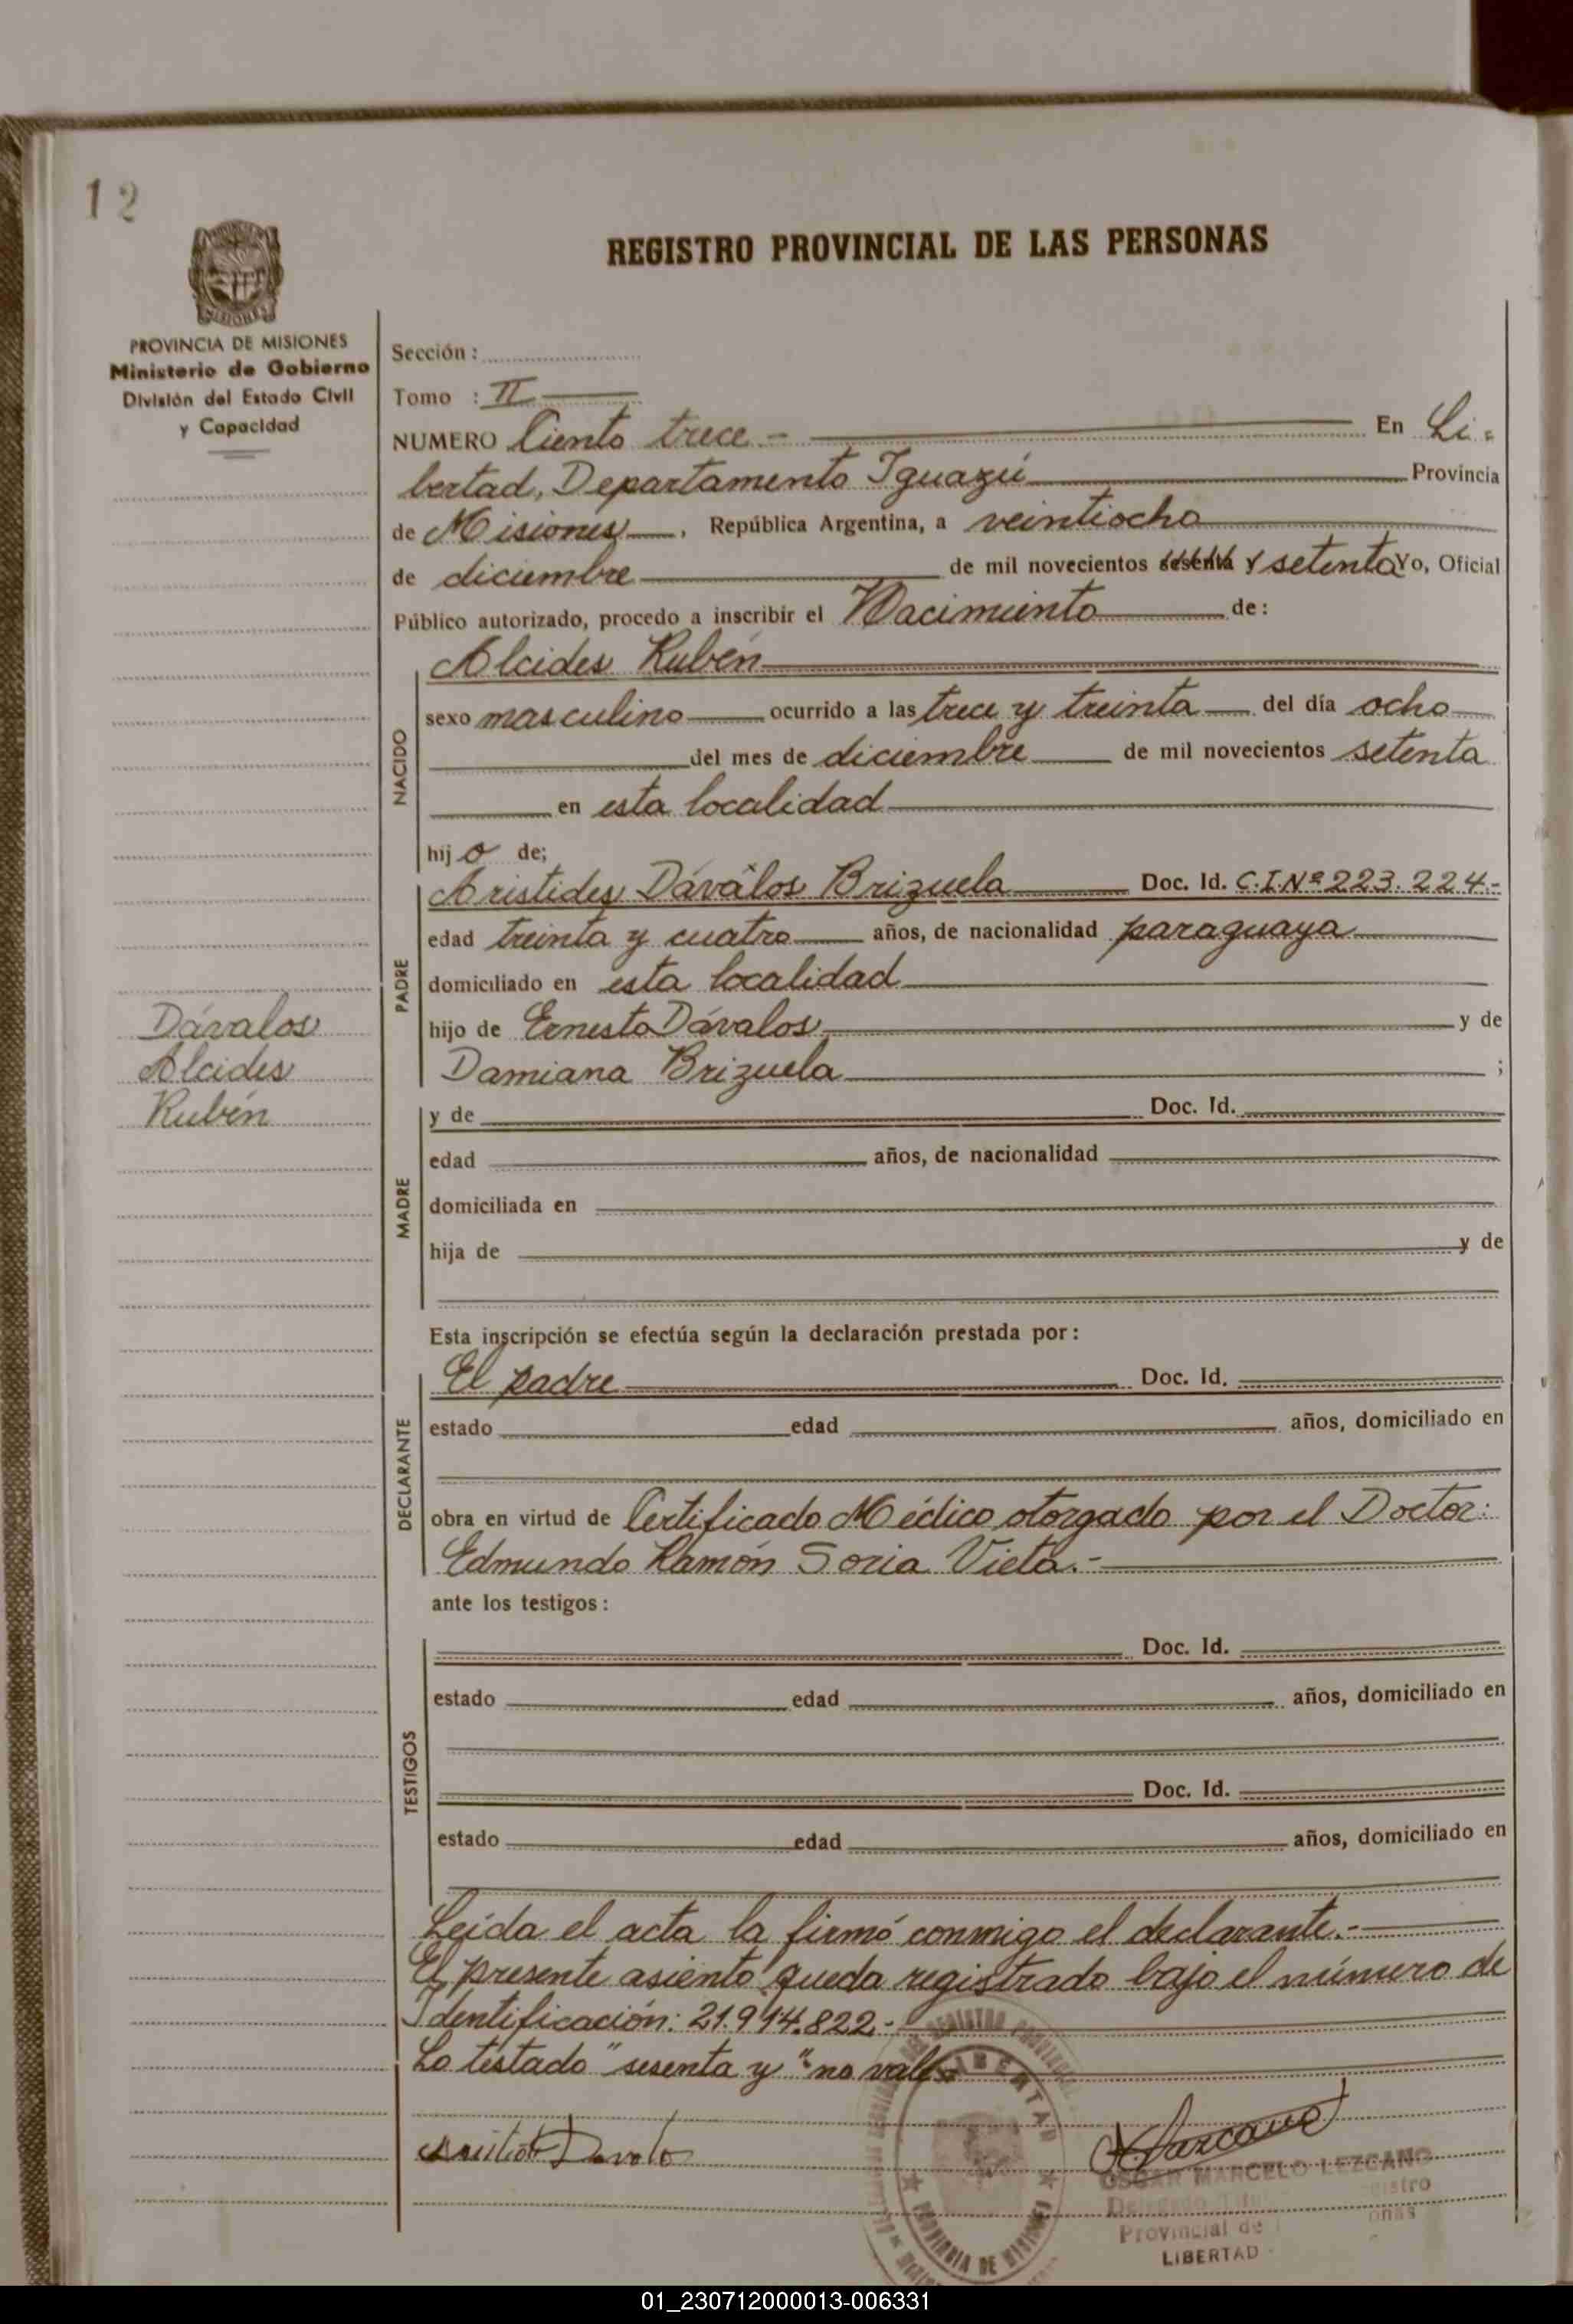 12
REGISTRO PROVINCIAL DE LAS PERSONAS
MISIONES
PROVINCIA DE MISIONES
Ministerio de Gobierno
División del Estado Civil
y Capacidad
Sección :
Tomo : II
NUMERO Ciento trece.- En Li-
bertad, Departamento Iguazú Provincia
de Misiones , República Argentina, a veintiocho
de diciembre de mil novecientos sesenta y setenta Yo, Oficial
Público autorizado, procedo a inscribir el Nacimiento de:
NACIDO
Alcides Rubén
sexo masculino ocurrido a las trece y treinta del día ocho
del mes de diciembre de mil novecientos setenta
en esta localidad
hijo de;
PADRE
Aristides Dávalos Brizuela Doc. Id. C.I.Nº 223.224.-
edad treinta y cuatro años, de nacionalidad paraguaya
domiciliado en esta localidad
hijo de Ernesto Dávalos y de
Damiana Brizuela ;
Dávalos
Alcides
Rubén
MADRE
y de Doc. Id.
edad años, de nacionalidad
domiciliada en
hija de y de
Esta inscripción se efectúa según la declaración prestada por:
DECLARANTE
El padre Doc. Id.
estado edad años, domiciliado en
obra en virtud de Certificado Médico otorgado por el Doctor:
Edmundo Ramón Soria Vieta.-
ante los testigos:
TESTIGOS
Doc. Id.
estado edad años, domiciliado en
Doc. Id.
estado edad años, domiciliado en
Leída el acta la firmó conmigo el declarante.-
El presente asiento queda registrado bajo el número de
Identificación: 21.914.822.-
Lo testado "sesenta y" no vale.-
LIBERTAD
PROVINCIA DE MISIONES
OSCAR MARCELO LEZCANO
Provincial de
LIBERTAD
01_230712000013-006331